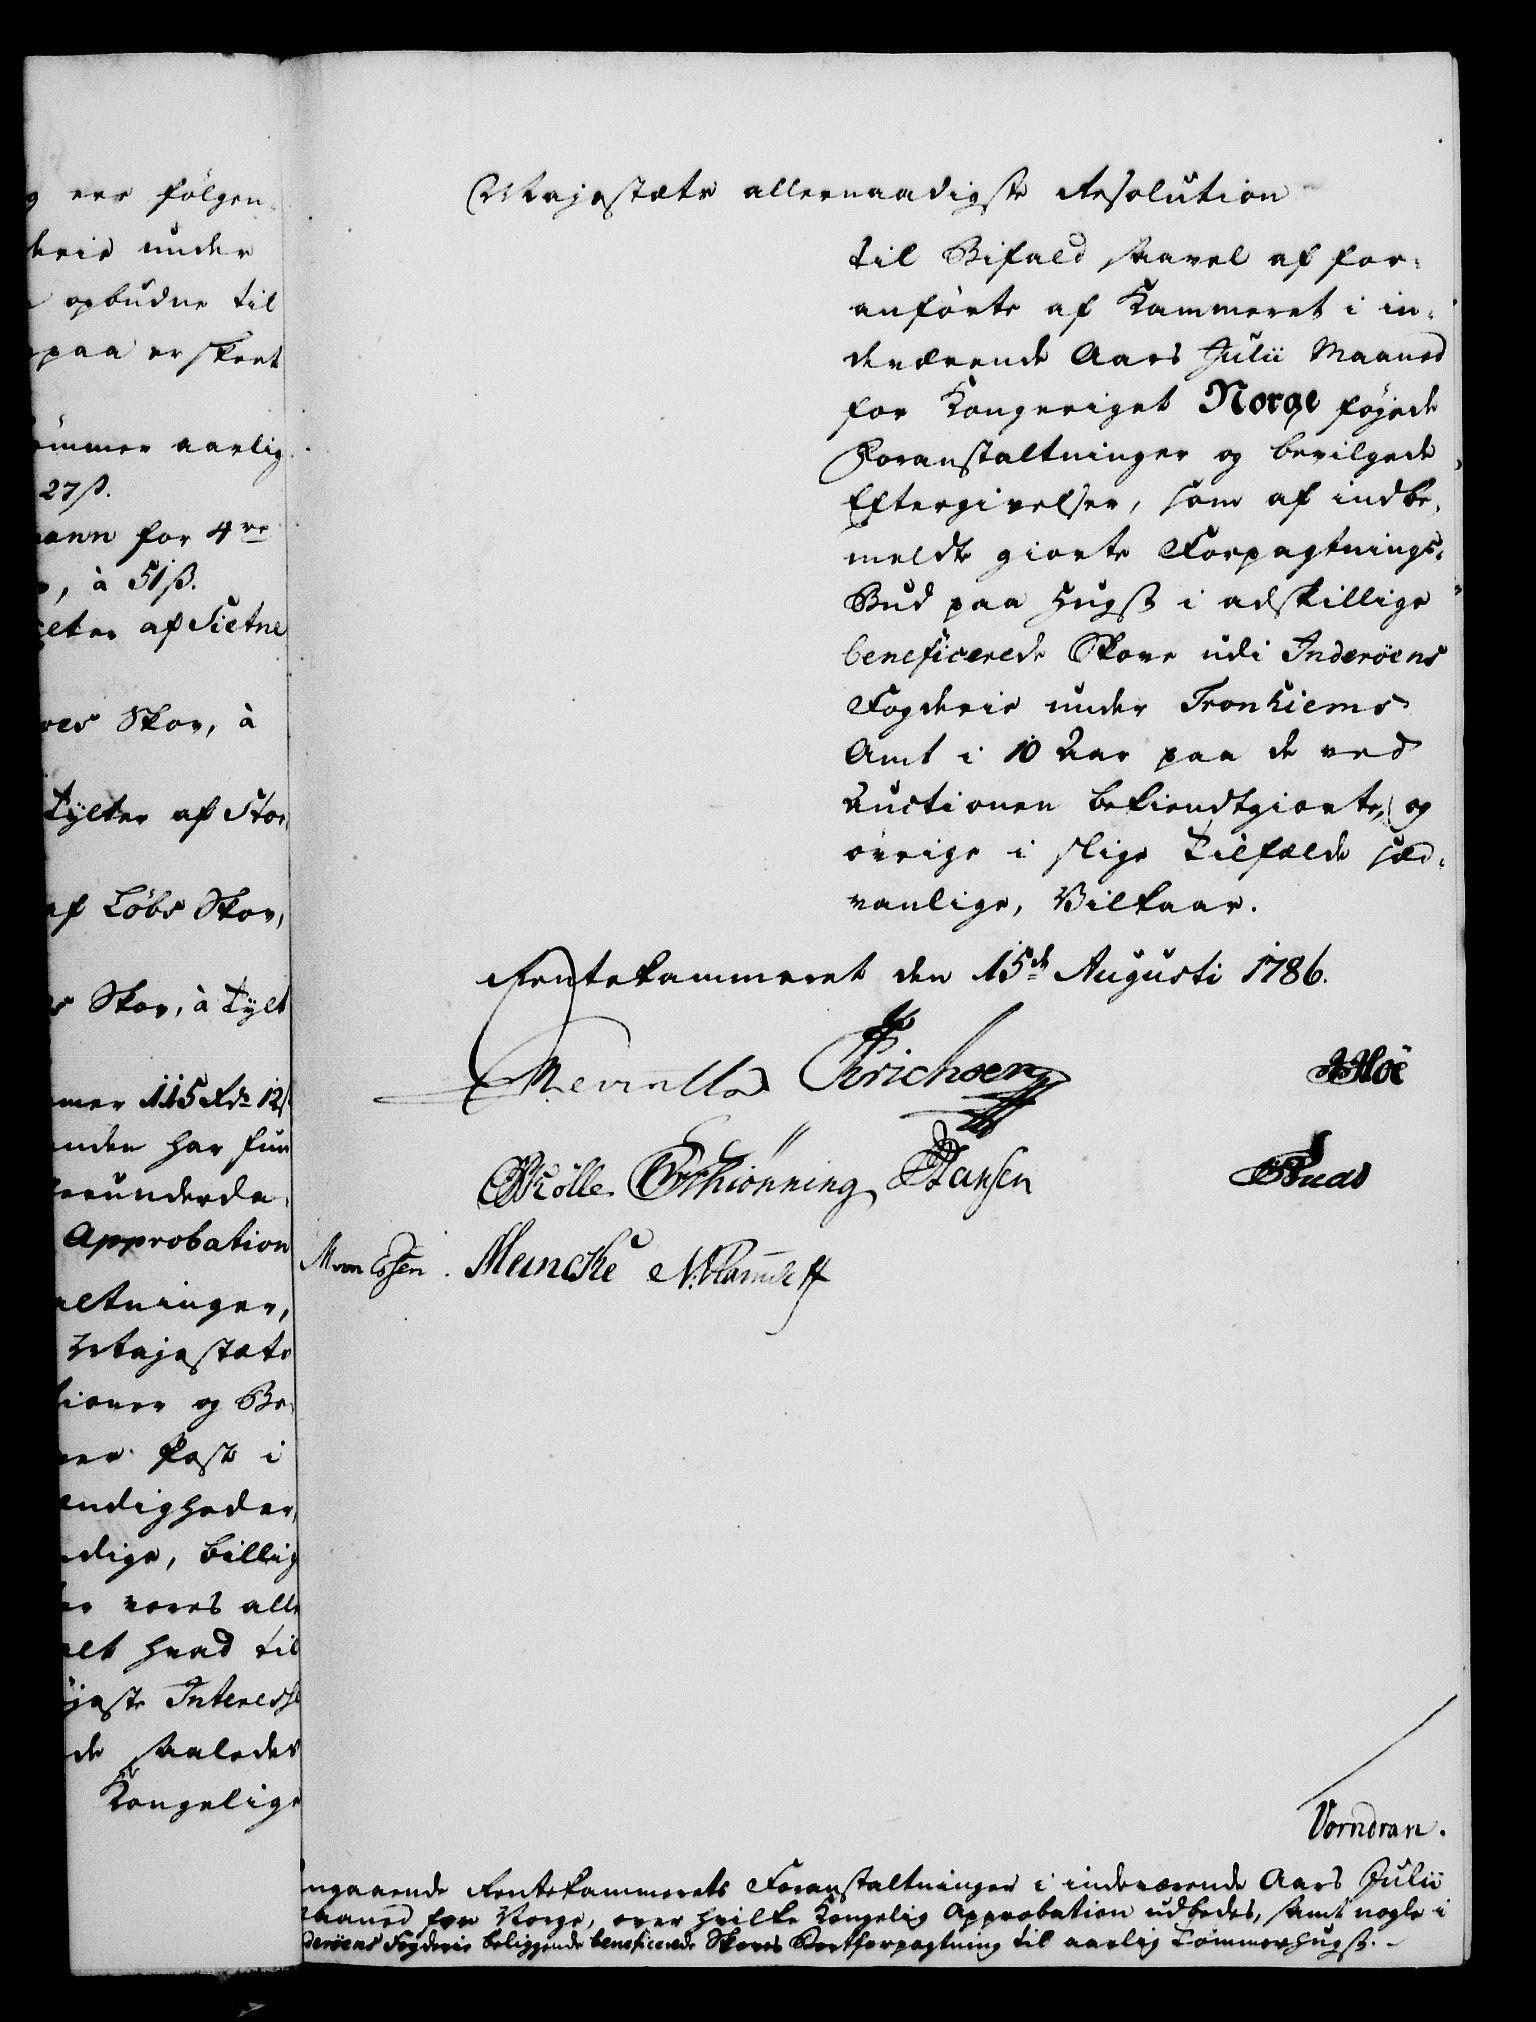 ere følgen¬
under
opbudne til
paa er skeet
aarlig
27 ß.
for 4re
, à 51 ß.
af Sietne
Skov, à
Tylter af Stor
af Løbs Skov,
Skov, à Tylt
115 Rdr 12 ß
har fun
Approbation
Majestæts
og Be¬
Post i
billig
vores alle
hvad til
Interesse
saaledes
Kongelige
Majestæts allernaadigste Resolution
til Bifald saavel af for¬
anførte af Kammeret i in¬
deværende Aars Julii Maaned
for Kongeriget Norge føjede
Foranstaltninger og bevilgede
Eftergivelser, som af indbe¬
meldte giorte Forpagtnings¬
Bud paa Hugst i adskillige
beneficerede Skove udi Inderøens
Fogderie under Tronhiems
Amt i 10 Aar paa de ved
Auctionen bekiendtgiorte, og
øvrige i slige Tilfælde sæd¬
vanlige, Vilkaar.
Rentekammeret den 15de Augusti 1786.
Erichsen
Schiønning Hansen
M von Essen. Meincke
Vorndran.
Angaaende Rentekammerets Foranstaltninger i indeværende Aars Julii
Maaned for Norge, over hvilke Kongelig Approbation udbedes, samt nogle i
Inderøens Fogderie beliggende beneficerede Skoves Bortforpagtning til aarlig Tømmerhugst.